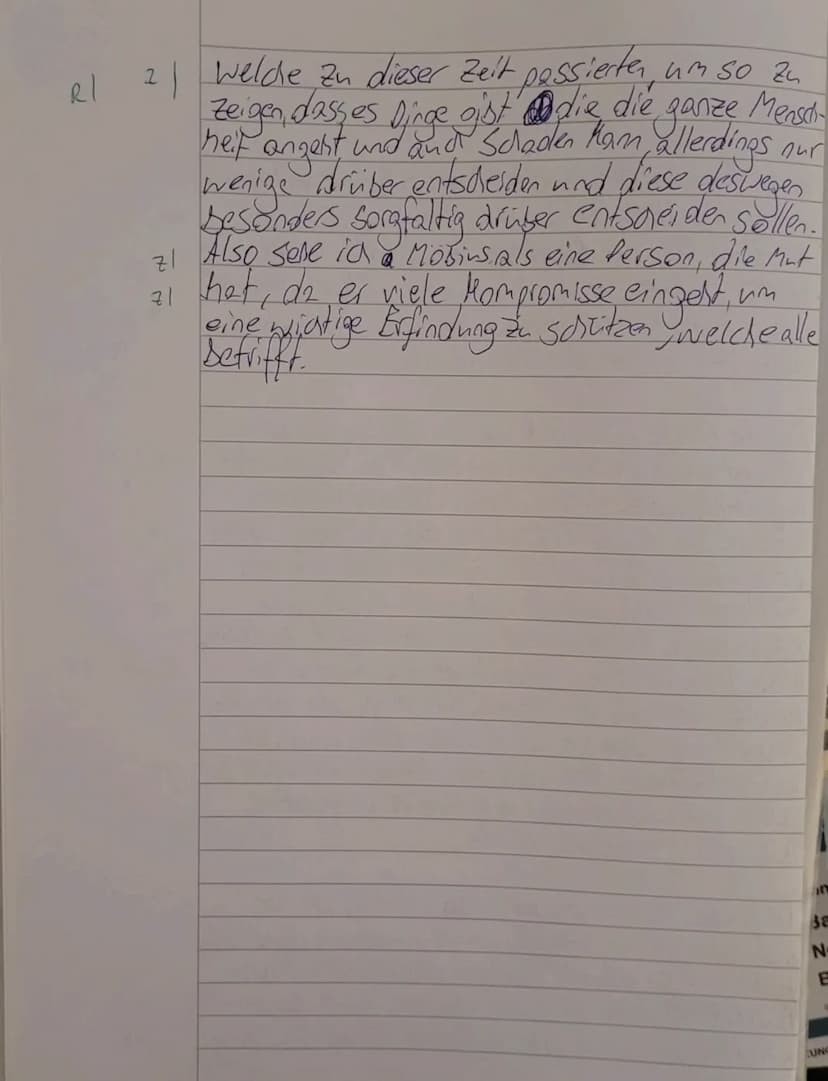 R| Z| Welche zu dieser Zeit passierten, um so zu
zeigen, dass es Dinge gibt die die ganze Mensch-
heit angeht und auch Schaden kann, allerdings nur
wenige drüber entscheiden und diese deswegen
besonders sorgfältig drüber entscheiden sollen.
Z| Also sehe ich Möbius als eine Person, die Mut
Z| hat, da er viele Kompromisse eingeht, um
eine wichtige Erfindung zu schützen, welche alle
betrifft.